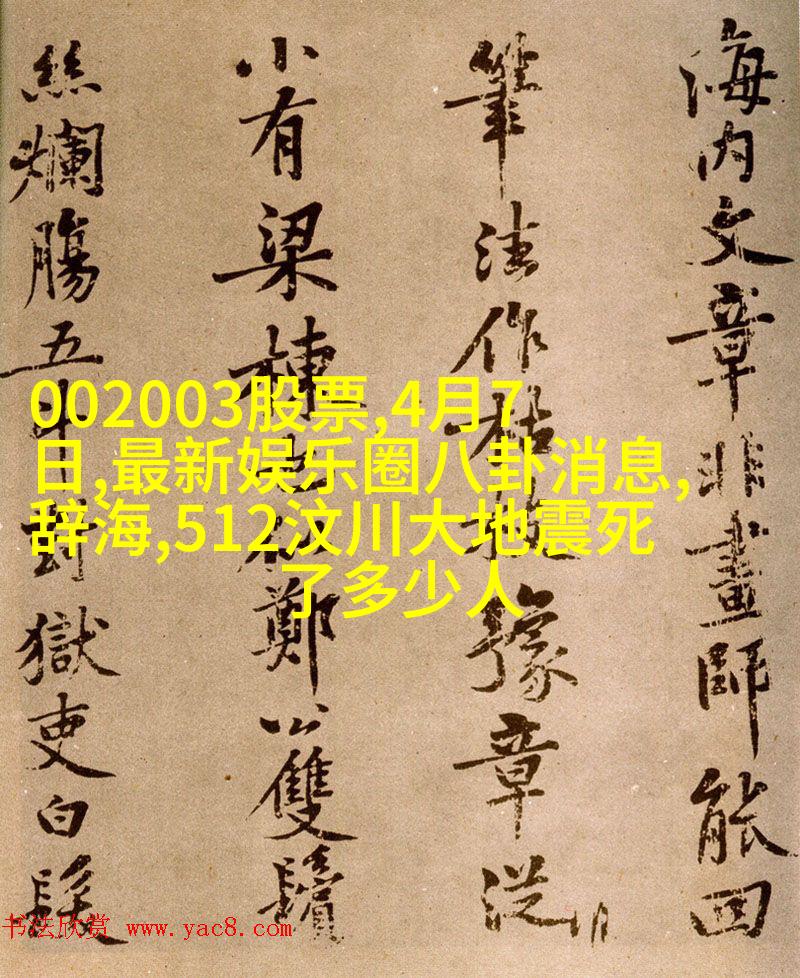 海内文章非畫師能回
筆法作枯枝豫章從
小有梁棟也似鄭公雙鬢
絲爛腸五斗對獄吏白髮
002003股票,4月7
日,最新娱乐圈八卦消息,
辞海,512汶川大地震死
了多少人
书法欣赏 www.yac8.com